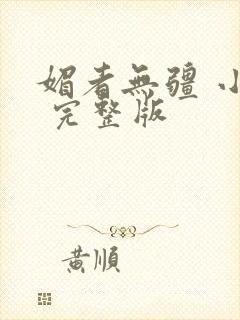 媚者無疆 小
完整版
黃順